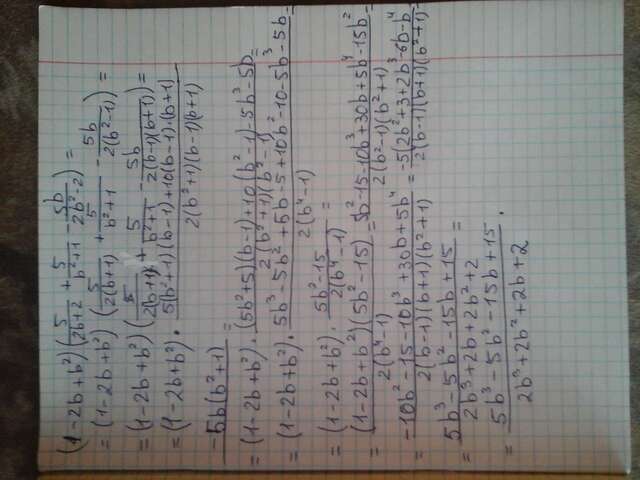 (1-2b+b²)(5/(2b+2) + 5/(b²+1) - 5b/(2b²-2)) =
= (1-2b+b²) (5/(2(b+1)) + 5/(b²+1) - 5b/(2(b²-1))) =
= (1-2b+b²) (5/(2(b+1)) + 5/(b²+1) - 5b/(2(b-1)(b+1))) =
= (1-2b+b²) · (5(b²+1)(b-1)+10(b-1)·(b+1))/(2(b²+1)(b-1)(b+1))
-5b(b²+1) =
= (1-2b+b²) · ((5b²+5)(b-1)+10(b²-1)-5b³-5b)/(2(b²+1)(b²-1)) =
= (1-2b+b²) · (5b³-5b²+5b-5+10b²-10-5b³-5b)/(2(b⁴-1)) =
= (1-2b+b²) · (5b²-15)/(2(b⁴-1)) =
= ((1-2b+b²)(5b²-15))/(2(b⁴-1)) = (5b²-15-10b³+30b+5b⁴-15b²)/(2(b²-1)(b²+1)) =
= (-10b²-15-10b³+30b+5b⁴)/(2(b-1)(b+1)(b²+1)) = (-5(2b²+3+2b³-6b-b⁴)/(2(b-1)(b+1)(b²+1) =
= (5b³-5b²-15b+15)/(2b³+2b+2b²+2) =
= (5b³-5b²-15b+15)/(2b³+2b²+2b+2) .